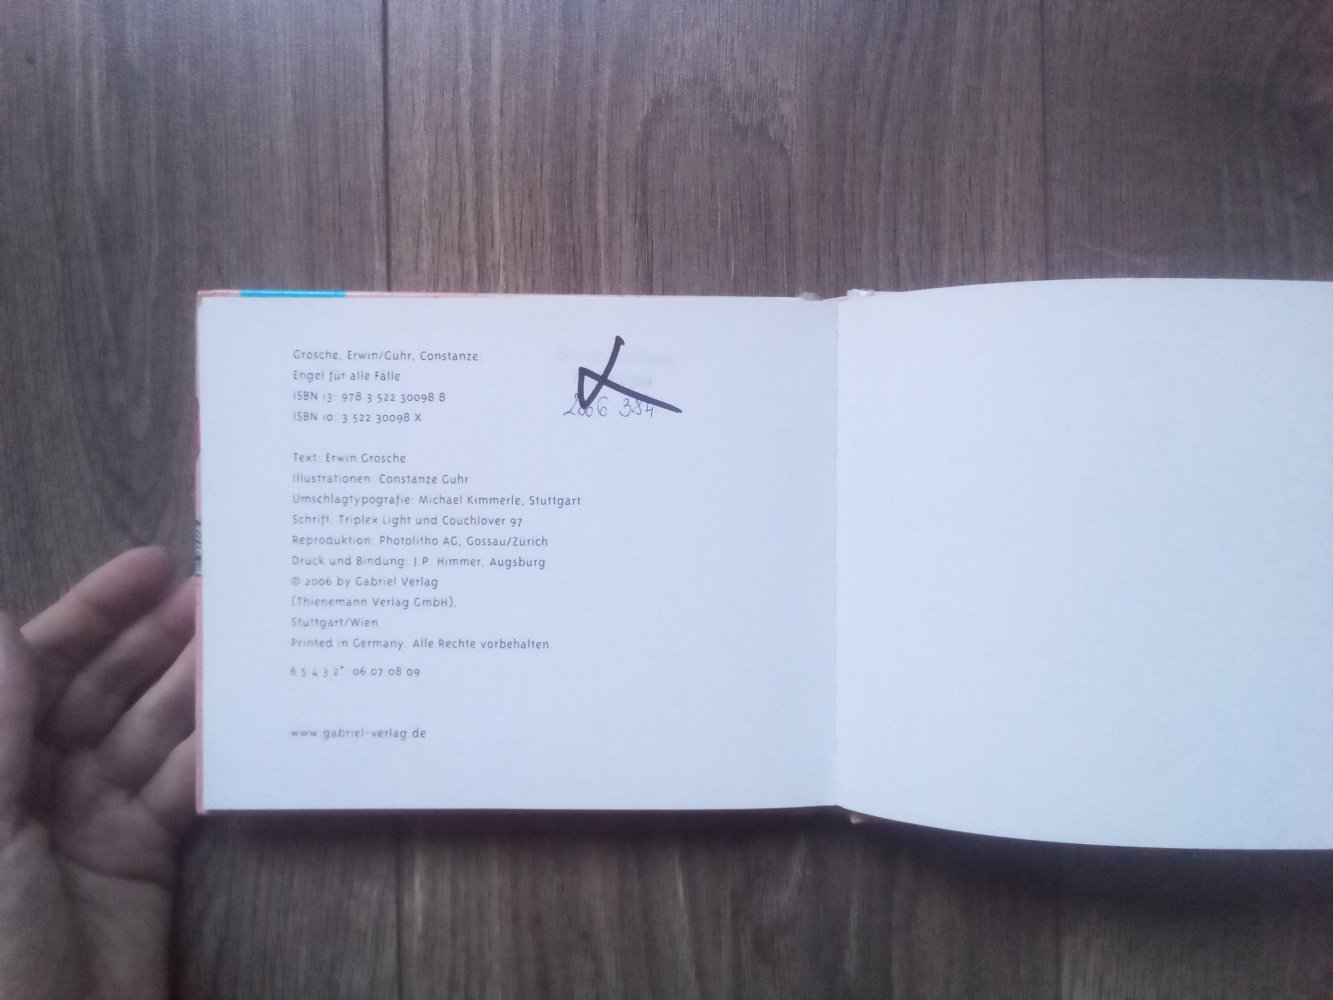 Grosche, Erwin/Guhr, Constanze:
Engel für alle Fälle
ISBN 13: 978 3 522 30098 8
ISBN 10: 3 522 30098 X
2006 384
Text: Erwin Grosche
Illustrationen: Constanze Guhr
Umschlagtypografie: Michael Kimmerle, Stuttgart
Schrift: Triplex Light und Couchlover 97
Reproduktion: Photolitho AG, Gossau/Zürich
Druck und Bindung: J.P. Himmer, Augsburg
© 2006 by Gabriel Verlag
(Thienemann Verlag GmbH),
Stuttgart/Wien
Printed in Germany. Alle Rechte vorbehalten.
6 5 4 3 2* 06 07 08 09
www.gabriel-verlag.de